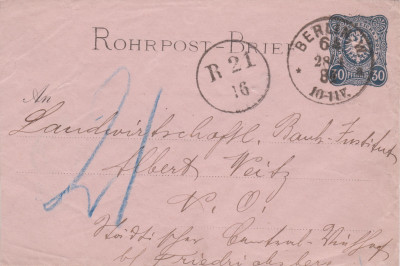 ROHRPOST-BRIEF
BERLIN, W.
64
28/4
10-11V.
30 30
R 21
16
21
An
Landwirtschaftl. Bank-Institut
Albert Weitz
N. O.
Städtischer Central-Viehhof
b/ Friedrichsberg